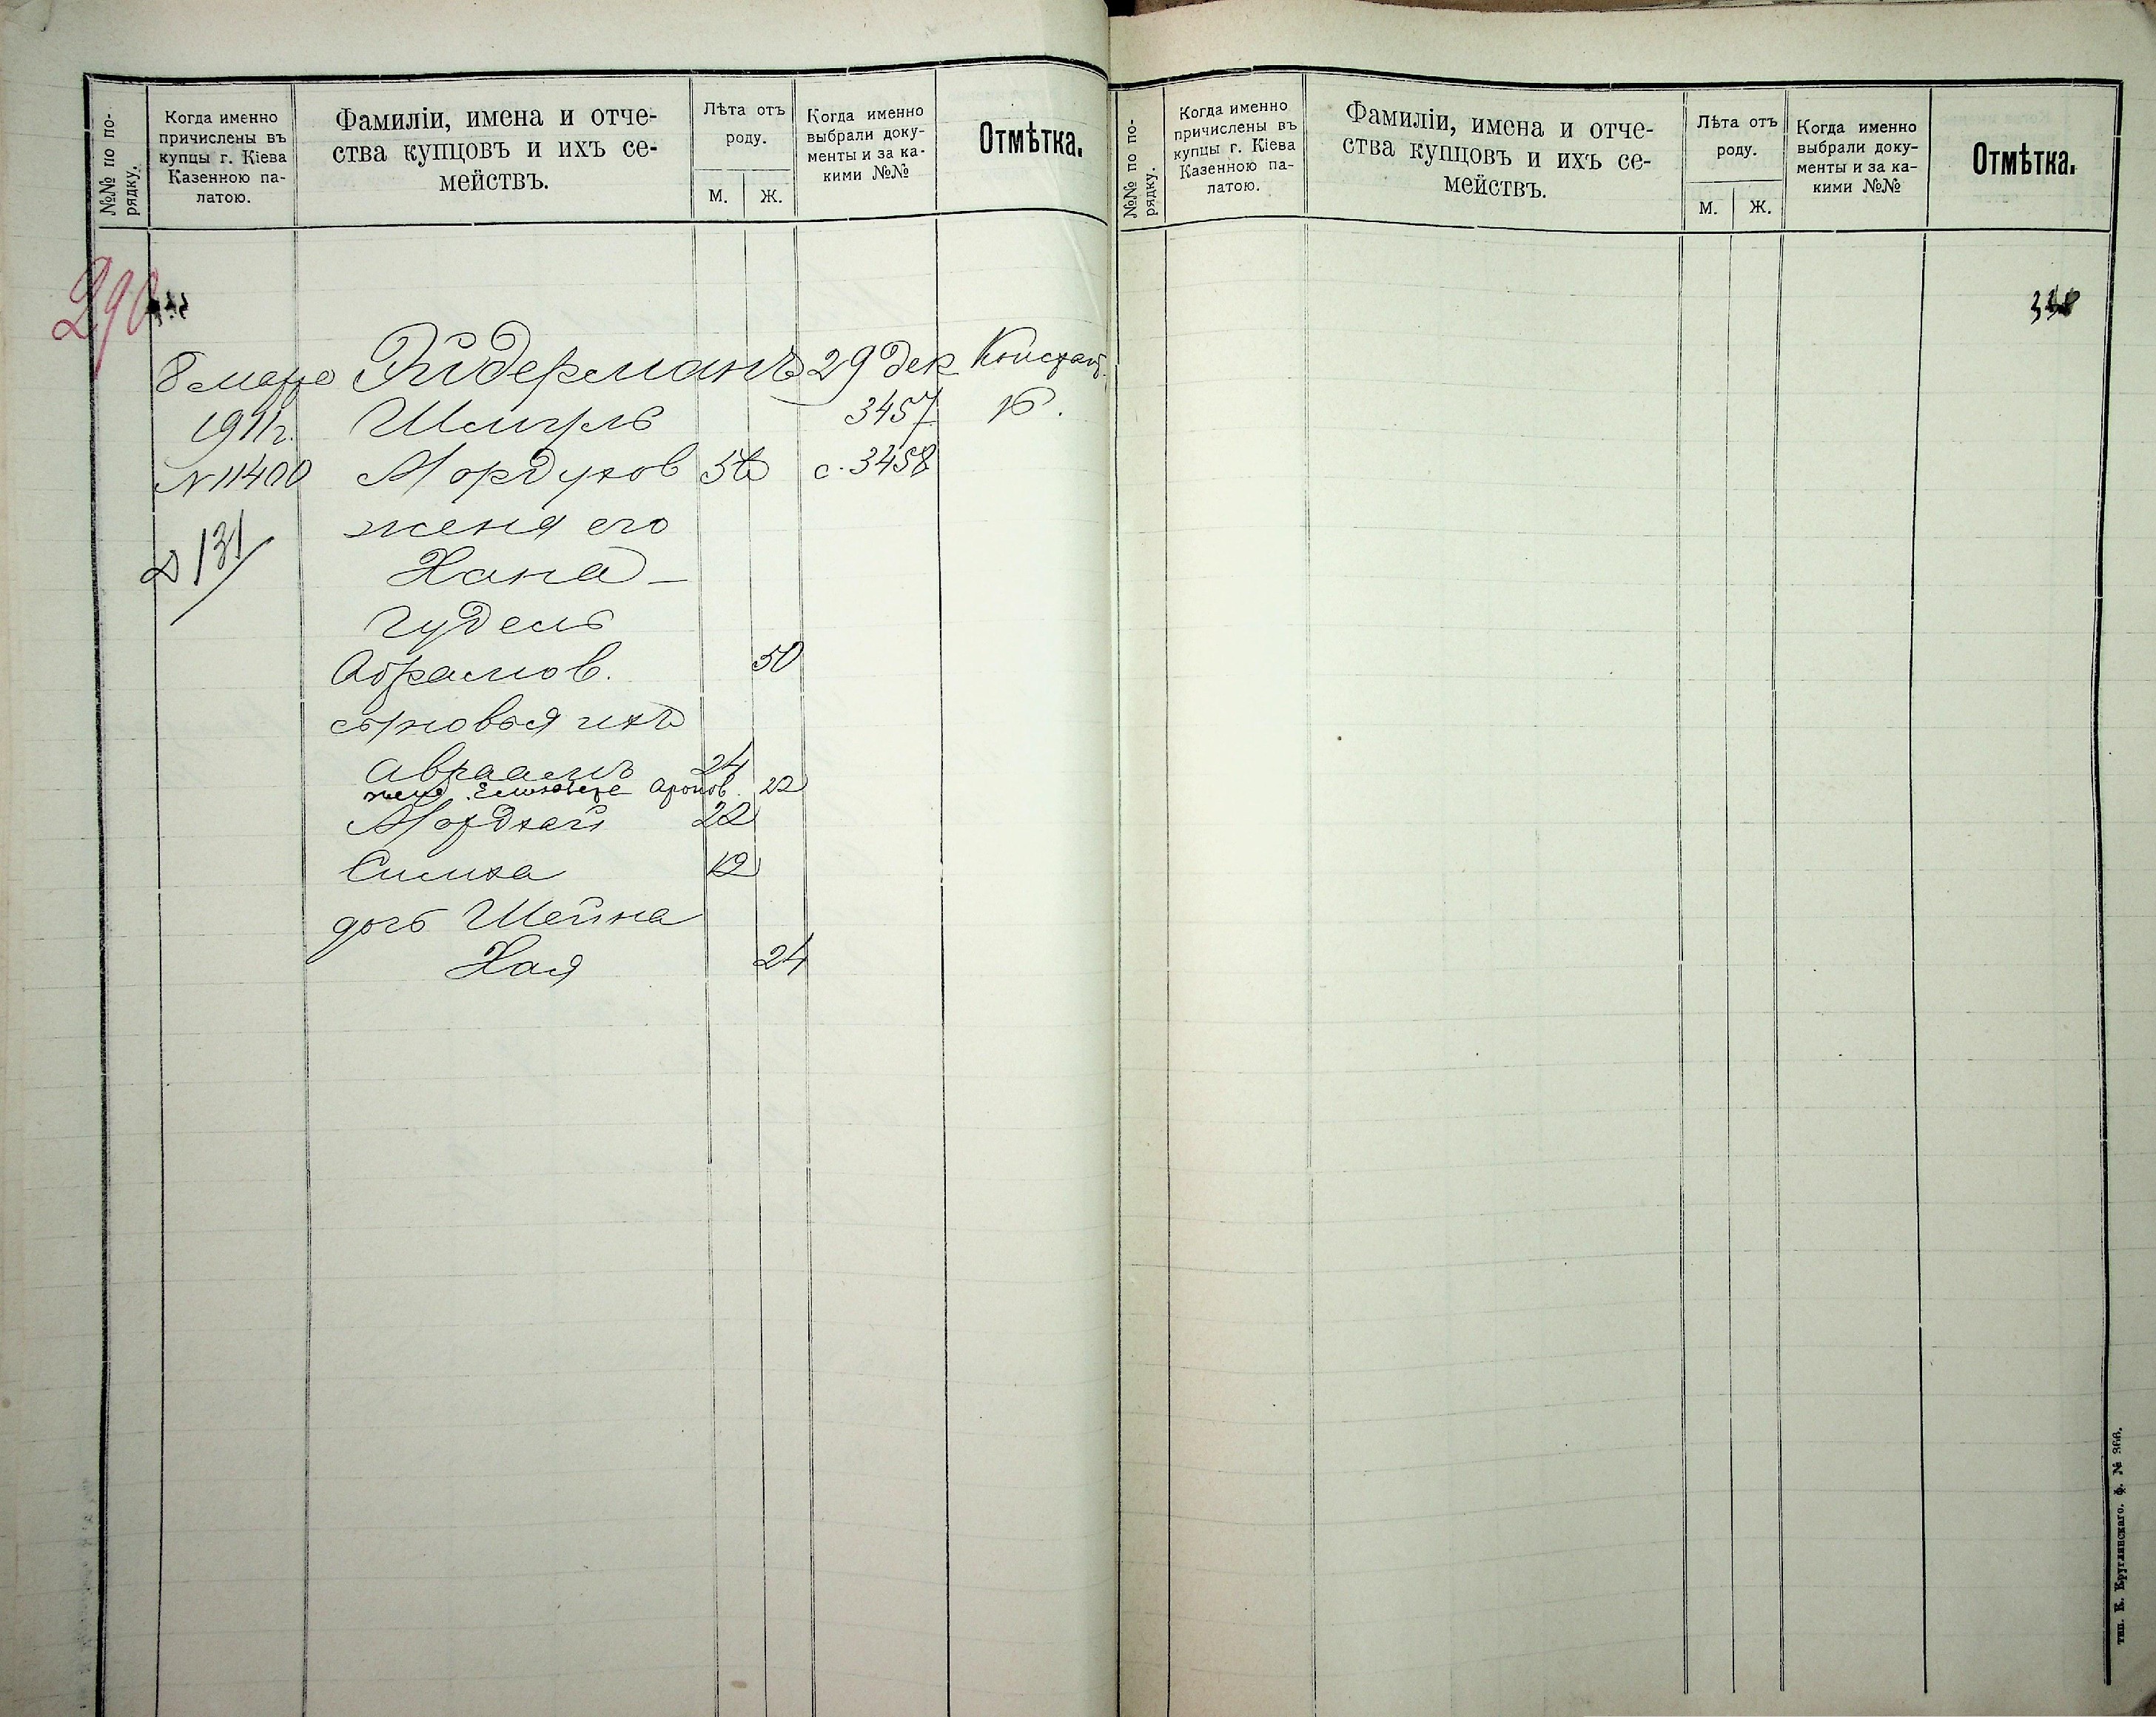 №№ по порядку.
Когда именно
причислены въ
купцы г. Кіева
Казенною па-
латою.
Фамиліи, имена и отче-
ства купцовъ и ихъ се-
мействъ.
Лѣта отъ
роду.
М. Ж.
Когда именно
выбрали доку-
менты и за ка-
кими №№
Отмѣтка.
290
8 марта
1911 г.
N 11400
131
29 дек
3457
с. 3458
Констант.
16.
Шмуль
Мордухов 56
жена его
Хана-
Гудель
Абрамов. 50
сыновья ихъ
Авраамъ 24
жена Елизавета Аронов. 22
Мордхай 22
Симха 12
дочь Шейна
Хая 24
№№ по порядку.
Когда именно
причислены въ
купцы г. Кіева
Казенною па-
латою.
Фамиліи, имена и отче-
ства купцовъ и ихъ се-
мействъ.
Лѣта отъ
роду.
М. Ж.
Когда именно
выбрали доку-
менты и за ка-
кими №№
Отмѣтка.
тип. К. Круглянскаго. ф. № 366.